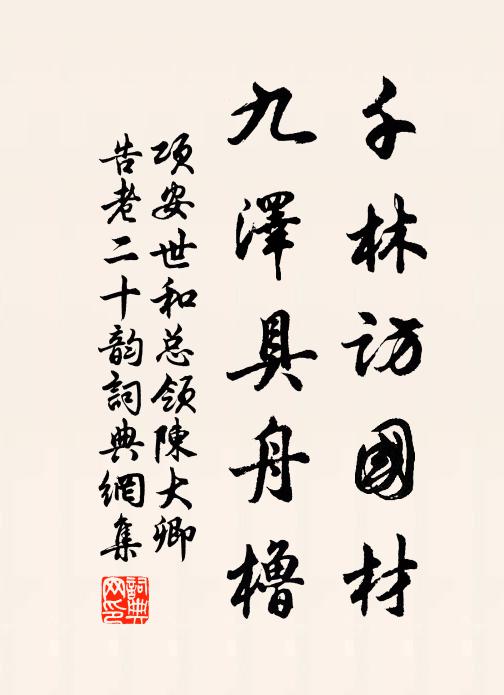 千林訪國材
九澤具舟櫓
项安世和总领陳大卿
告老二十韵詞典網集
詞典網印